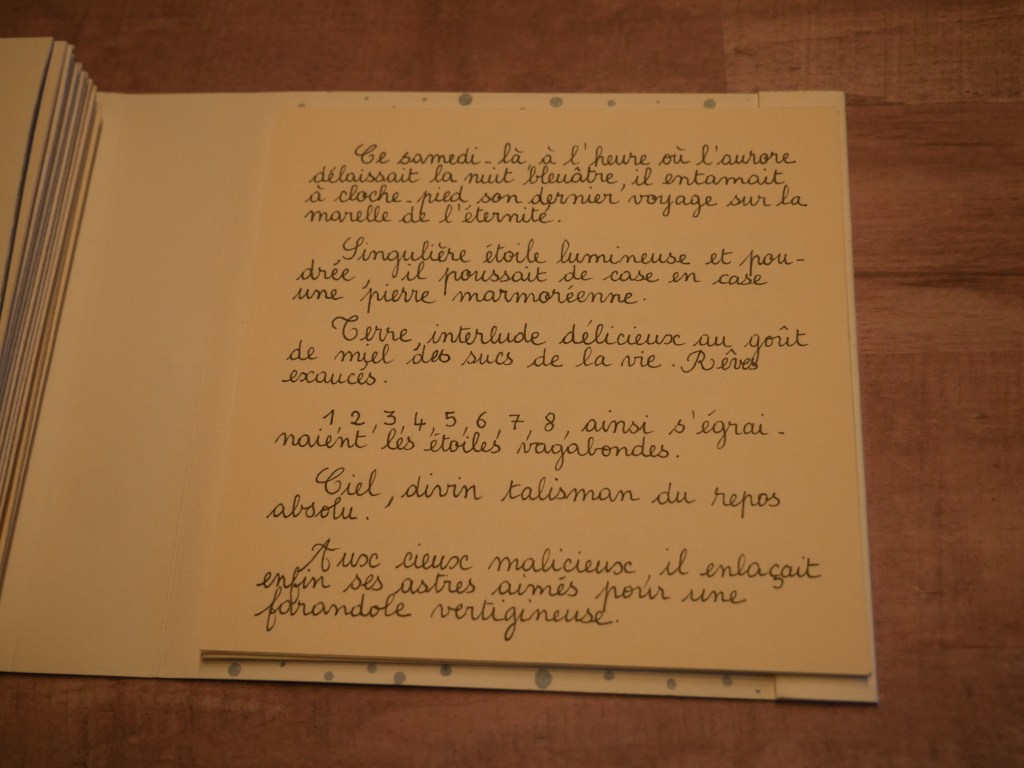 Ce samedi-là, à l'heure où l'aurore
délaissait la nuit bleuâtre, il entamait
à cloche-pied son dernier voyage sur la
marelle de l'éternité.
Singulière étoile lumineuse et pou-
drée, il poussait de case en case
une pierre marmoréenne.
Terre, interlude délicieux au goût
de miel des sucs de la vie. Rêves
exaucés.
1, 2, 3, 4, 5, 6, 7, 8, ainsi s'égrai-
naient les étoiles vagabondes.
Ciel, divin talisman du repos
absolu.
Aux cieux malicieux, il enlaçait
enfin ses astres aimés pour une
farandole vertigineuse.